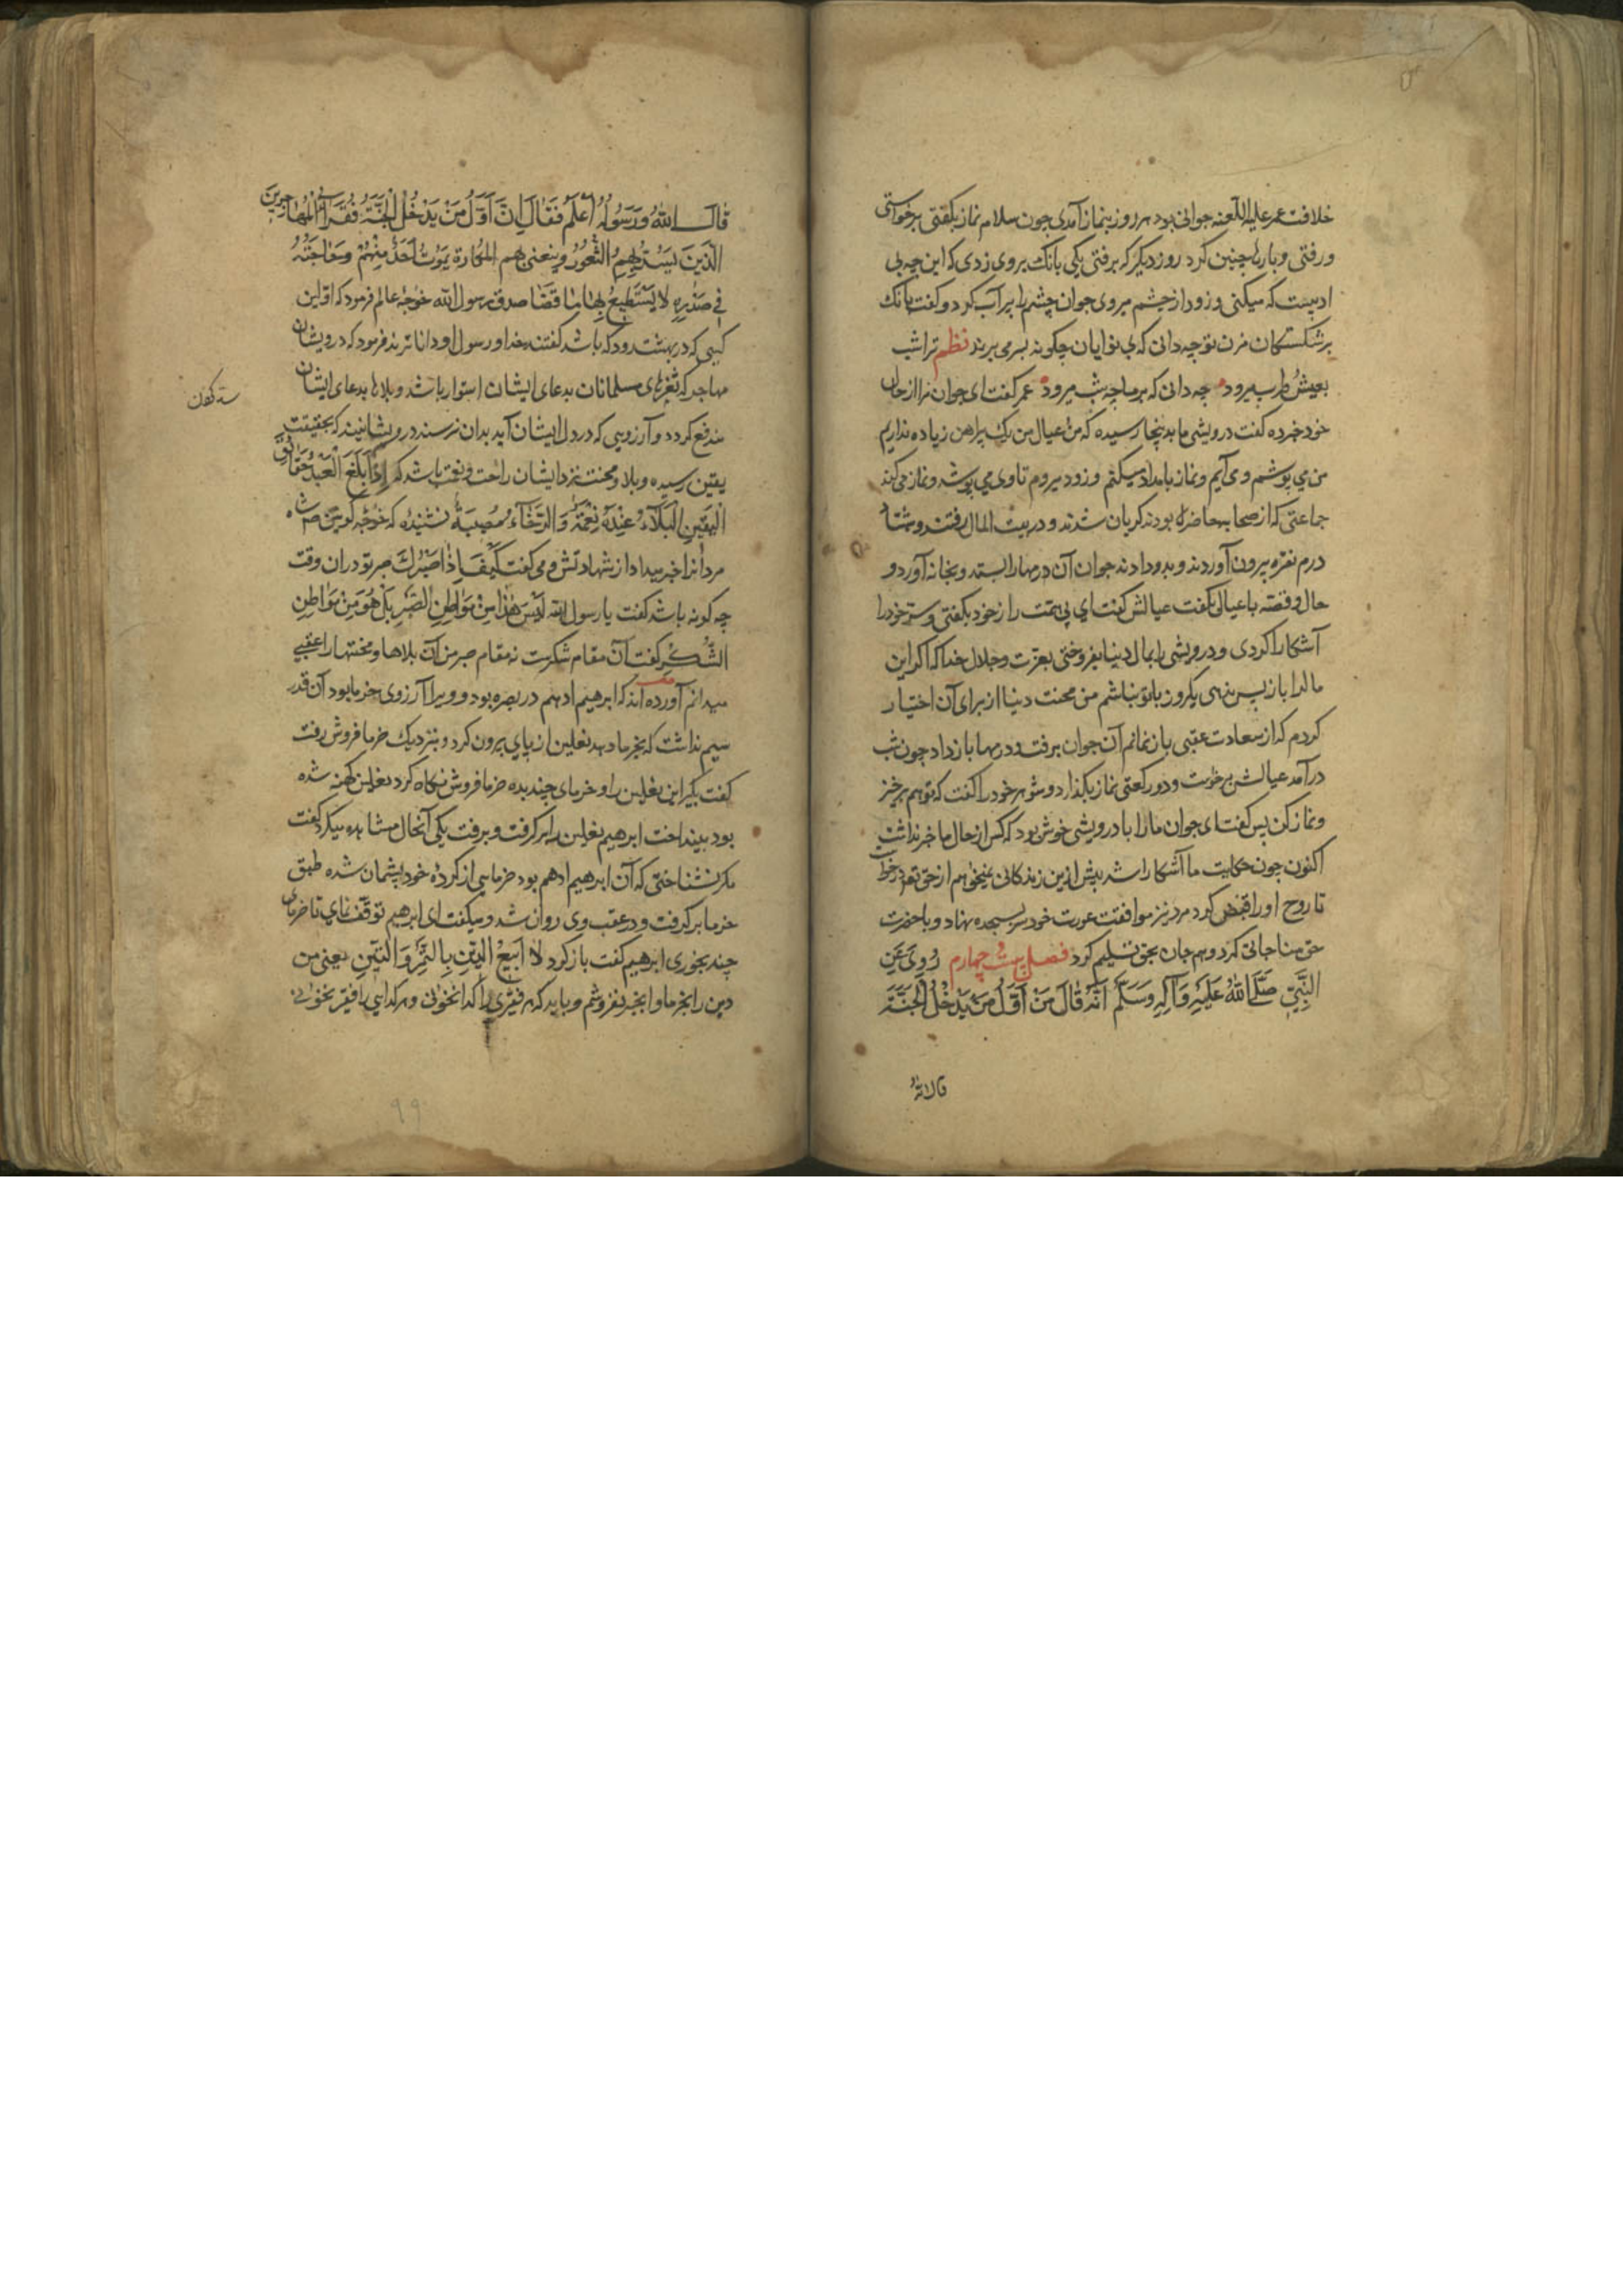 خلافت عمر علیه اللعنه جوانی بود هر روز بنماز آمدی چون سلام نماز بگفتی برخواستی
و رفتی و بارها چنین کرد روز دیگر که برفتی یکی بانک بروی زدی که این چه بی
ادبیست که میکنی و زود از چشم میروی جوان چشم را پر آب کرد و گفت بانک
بر شکستگان مزن تو چه دانی که بی نوایان چکونه بسر می برند نظم ترا شب
بعیش و طرب میرود چه دانی که بر ما چه شب میرود عمر کفت ای جوان مرا از حال
خود خبر ده کفت درویشی ما بدینجا رسیده که من و عیال من یک پیراهن زیاده نداریم
من می پوشم و می آیم و نماز بامداد میکنم و زود میروم تا وی می پوشد و نماز می کند
جماعتی که از صحابه حاضر بودند کریان شدند و در بیت المال رفتند و هشتاد
درم نقره بیرون آوردند و بدو دادند جوان آن درمها را بستد و بخانه آورد و
حال و قصه با عیال بگفت عیالش کفت ای بی همت راز خود بکفتی و ستر خود را
آشکارا کردی و درویشی را بمال دنیا بفروختی بعزت و جلال خدا که اگر این
مال را باز پس ندهی یکروز با تو نباشم من محنت دنیا از برای آن اختیار
کردم که از سعادت عقبی باز نمانم آن جوان برفت و درمها باز داد چون شب
در آمد عیالش برخواست و دو رکعتی نماز بگذارد و شوهر خود را کفت که تو هم برخیز
و نماز کن پس کفت ای جوان ما را با درویشی خوش بود که کس از حال ما خبر نداشت
اکنون چون حکایت ما آشکارا شد بیش ازین زندکانی نمیخواهم از حق تعالی در خواست
تا روح او را قبض کرد مرد نیز موافقت عورت خود سر بسجده نهاد و با حضرت
حق مناجاتی کرد و هم جان بحق تسلیم کرد فصل بیست چهارم رُوِیَ عَنِ
النَّبِیِّ صَلَّی اللهُ عَلَیْهِ وَآلِهِ وَسَلَّمَ اَنَّهُ قَالَ مَنْ اَوَّلُ مَنْ یَدْخُلُ الْجَنَّةَ
قالالله
قالَ اللهُ وَرَسُولُهُ اَعْلَمُ فَقَالَ اِنَّ اَوَّلَ مَنْ یَدْخُلُ الْجَنَّةَ فُقَرَاءُ الْمُهَاجِرِینَ
الَّذِینَ یُسَدُّ بِهِمُ الثُّغُورُ وَ بهم المکاره یَمُوتُ اَحَدٌ مِنْهُمْ وَحَاجَتُهُ
فِی صَدْرِهِ لَا یَسْتَطِیعُ لَهَا قَضَا صدق رسول الله خواجه عالم فرمود که اولین
کسی که در بهشت رود که باشد کفتند خدا و رسول او داناترند فرمود که درویشان
مهاجر که ثغرهای مسلمانان بدعای ایشان استوار باشد و بلاها بدعای ایشان
مندفع کردد و آرزویی که در دل ایشان آید بدان نرسند درویشانیند که بحقیقت
یقین رسیده و بلا و محنت نزد ایشان راحت و نعمت باشد که اِذَا بَلَغَ الْعَبْدُ حَقَائِقَ
الْیَقِینِ الْبَلَاءُ عِنْدَهُ نِعْمَةٌ وَ الرَّخَاءُ مُصِیبَةٌ نشنیده که خواجه کونین شاه
مردانرا خبر میداد از شهادتش و می کفت کَیْفَ اِذًا صَبْرُكَ صبر تو در آن وقت
چه کونه باشد کفت یا رسول الله لَیْسَ هٰذَا مِنْ مَوَاطِنِ الصَّبْرِ بَلْ هُوَ مِنْ مَوَاطِنِ
الشُّکْرِ کفت آن مقام شکرست نه مقام صبر من آن بلاها و محنتها را عقبی
میدانم آورده اند که ابرهیم ادهم در بصره بود و ویرا آرزوی خرما بود آن قدر
سیم نداشت که بخرما دهد نعلین از پای بیرون کرد و بنزدیک خرما فروش رفت
کفت بکیر این نعلین را و خرمای چند بده خرما فروش نکاه کرد نعلین کهنه شده
بود بینداخت ابرهیم نعلین را برکرفت و برفت یکی آنحال مشاهده میکرد کفت
مکر نشناختی که آن ابرهیم ادهم بود خرمایی از کرده خود پشیمان شده طبق
خرما برکرفت و در عقب وی روان شد و میکفت ای ابرهیم توقف نمای تا خرمای
چند بخوری ابرهیم کفت باز کرد لَا اَبِیعُ الدِّینَ بِالتَّمْرِ وَ التِّینِ یعنی من
دین را بخرما و انجیر نفروشم و باید که هر فقیری را کدا نخوانی و هر کدایی را فقیر نخوانی